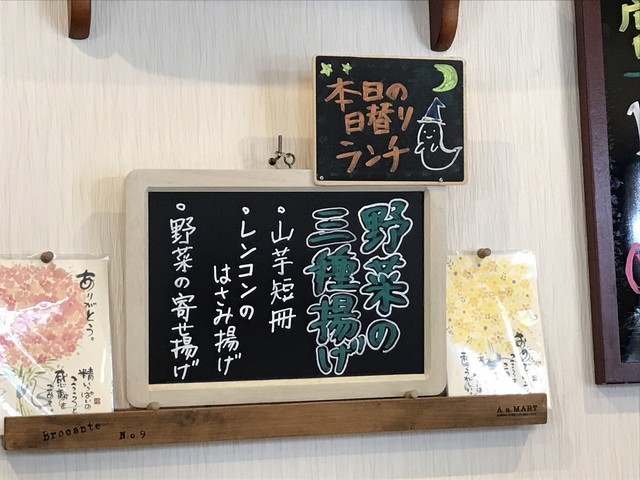 本日の
日替り
ランチ
野菜の
三種揚げ
・山芋短冊
・レンコンの
はさみ揚げ
・野菜の寄せ揚げ
ありがとう。
精いっぱいの
感謝を
Brocante No.9
A.a.MART